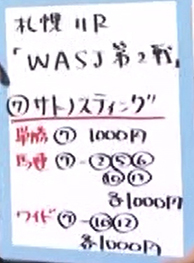 札幌11R
「WASJ第2戦」
⑦サトノスティング
単勝⑦ 1000円
馬連⑦-②⑤⑥
⑩⑫
各1000円
ワイド⑦-⑩⑫
各1000円